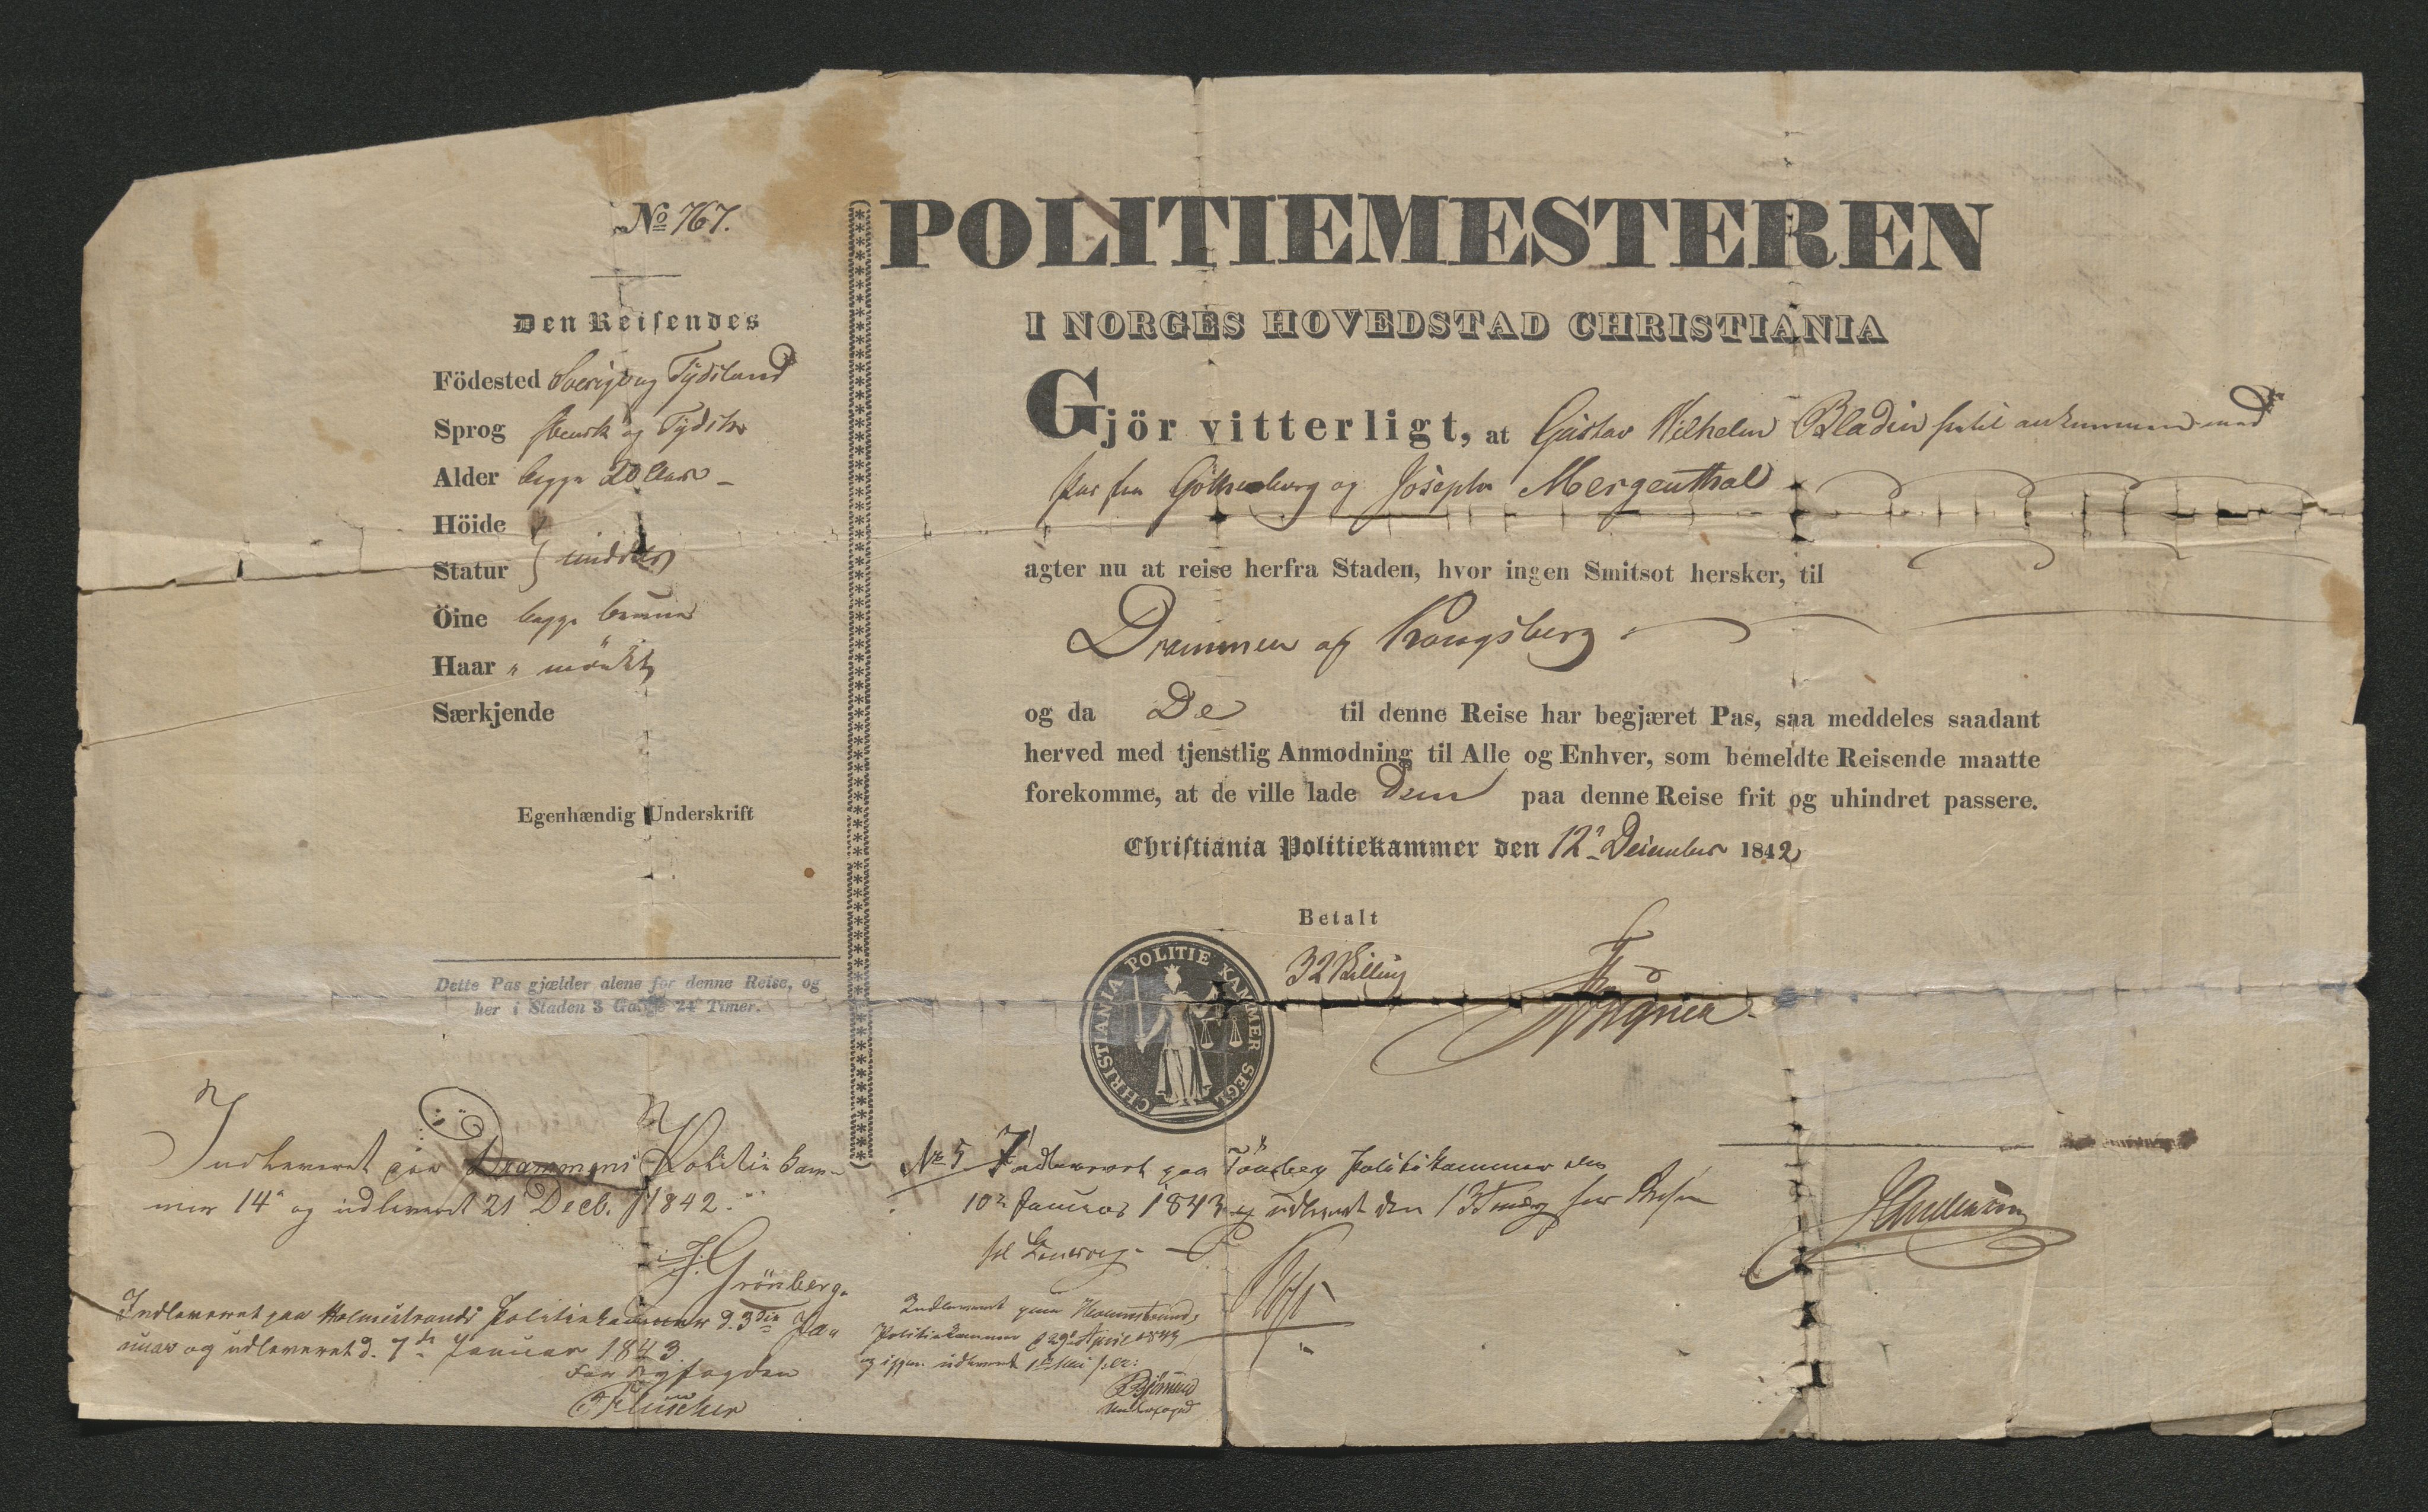 No 767.
Den Reisendes
Födested Sverige og Tydskland
Sprog svensk og Tydsk
Alder begge 20 Aar
Höide
Statur middels
Öine begge brune
Haar " mörkt
Særkjende
Egenhændig Underskrift
Dette Pas gjælder alene for denne Reise, og
her i Staden 3 Gange 24 Timer.
POLITIEMESTEREN
I NORGES HOVEDSTAD CHRISTIANIA
Gjör vitterligt, at Gustav Wilhelm Bladin ankommen med
Pas fra Göthenborg og Joseph Mergenthal
agter nu at reise herfra Staden, hvor ingen Smitsot hersker, til
Drammen og Kongsberg
og da De til denne Reise har begjæret Pas, saa meddeles saadant
herved med tjenstlig Anmodning til Alle og Enhver, som bemeldte Reisende maatte
forekomme, at de ville lade Dem paa denne Reise frit og uhindret passere.
Christiania Politiekammer den 12 December 1842
Betalt
32 Skilling
CHRISTIANIA POLITIE KAMMER SEGL
Indleveret paa Drammens Politiekam-
mer 14 og udleveret 21 Decb. 1842.
J. Grönberg.
Indleveret paa Holmestrands Politiekammer d. 3die Ja-
nuar og udleveret d. 7de Januar 1843.
For Byfogden
No 5 Indleveret paa Tönsberg Politikammer den
10 Januar 1843 og udleveret den 13
til
Indleveret paa
Politiekammer d 29 April 1843
og igjen udleveret 1 Mai